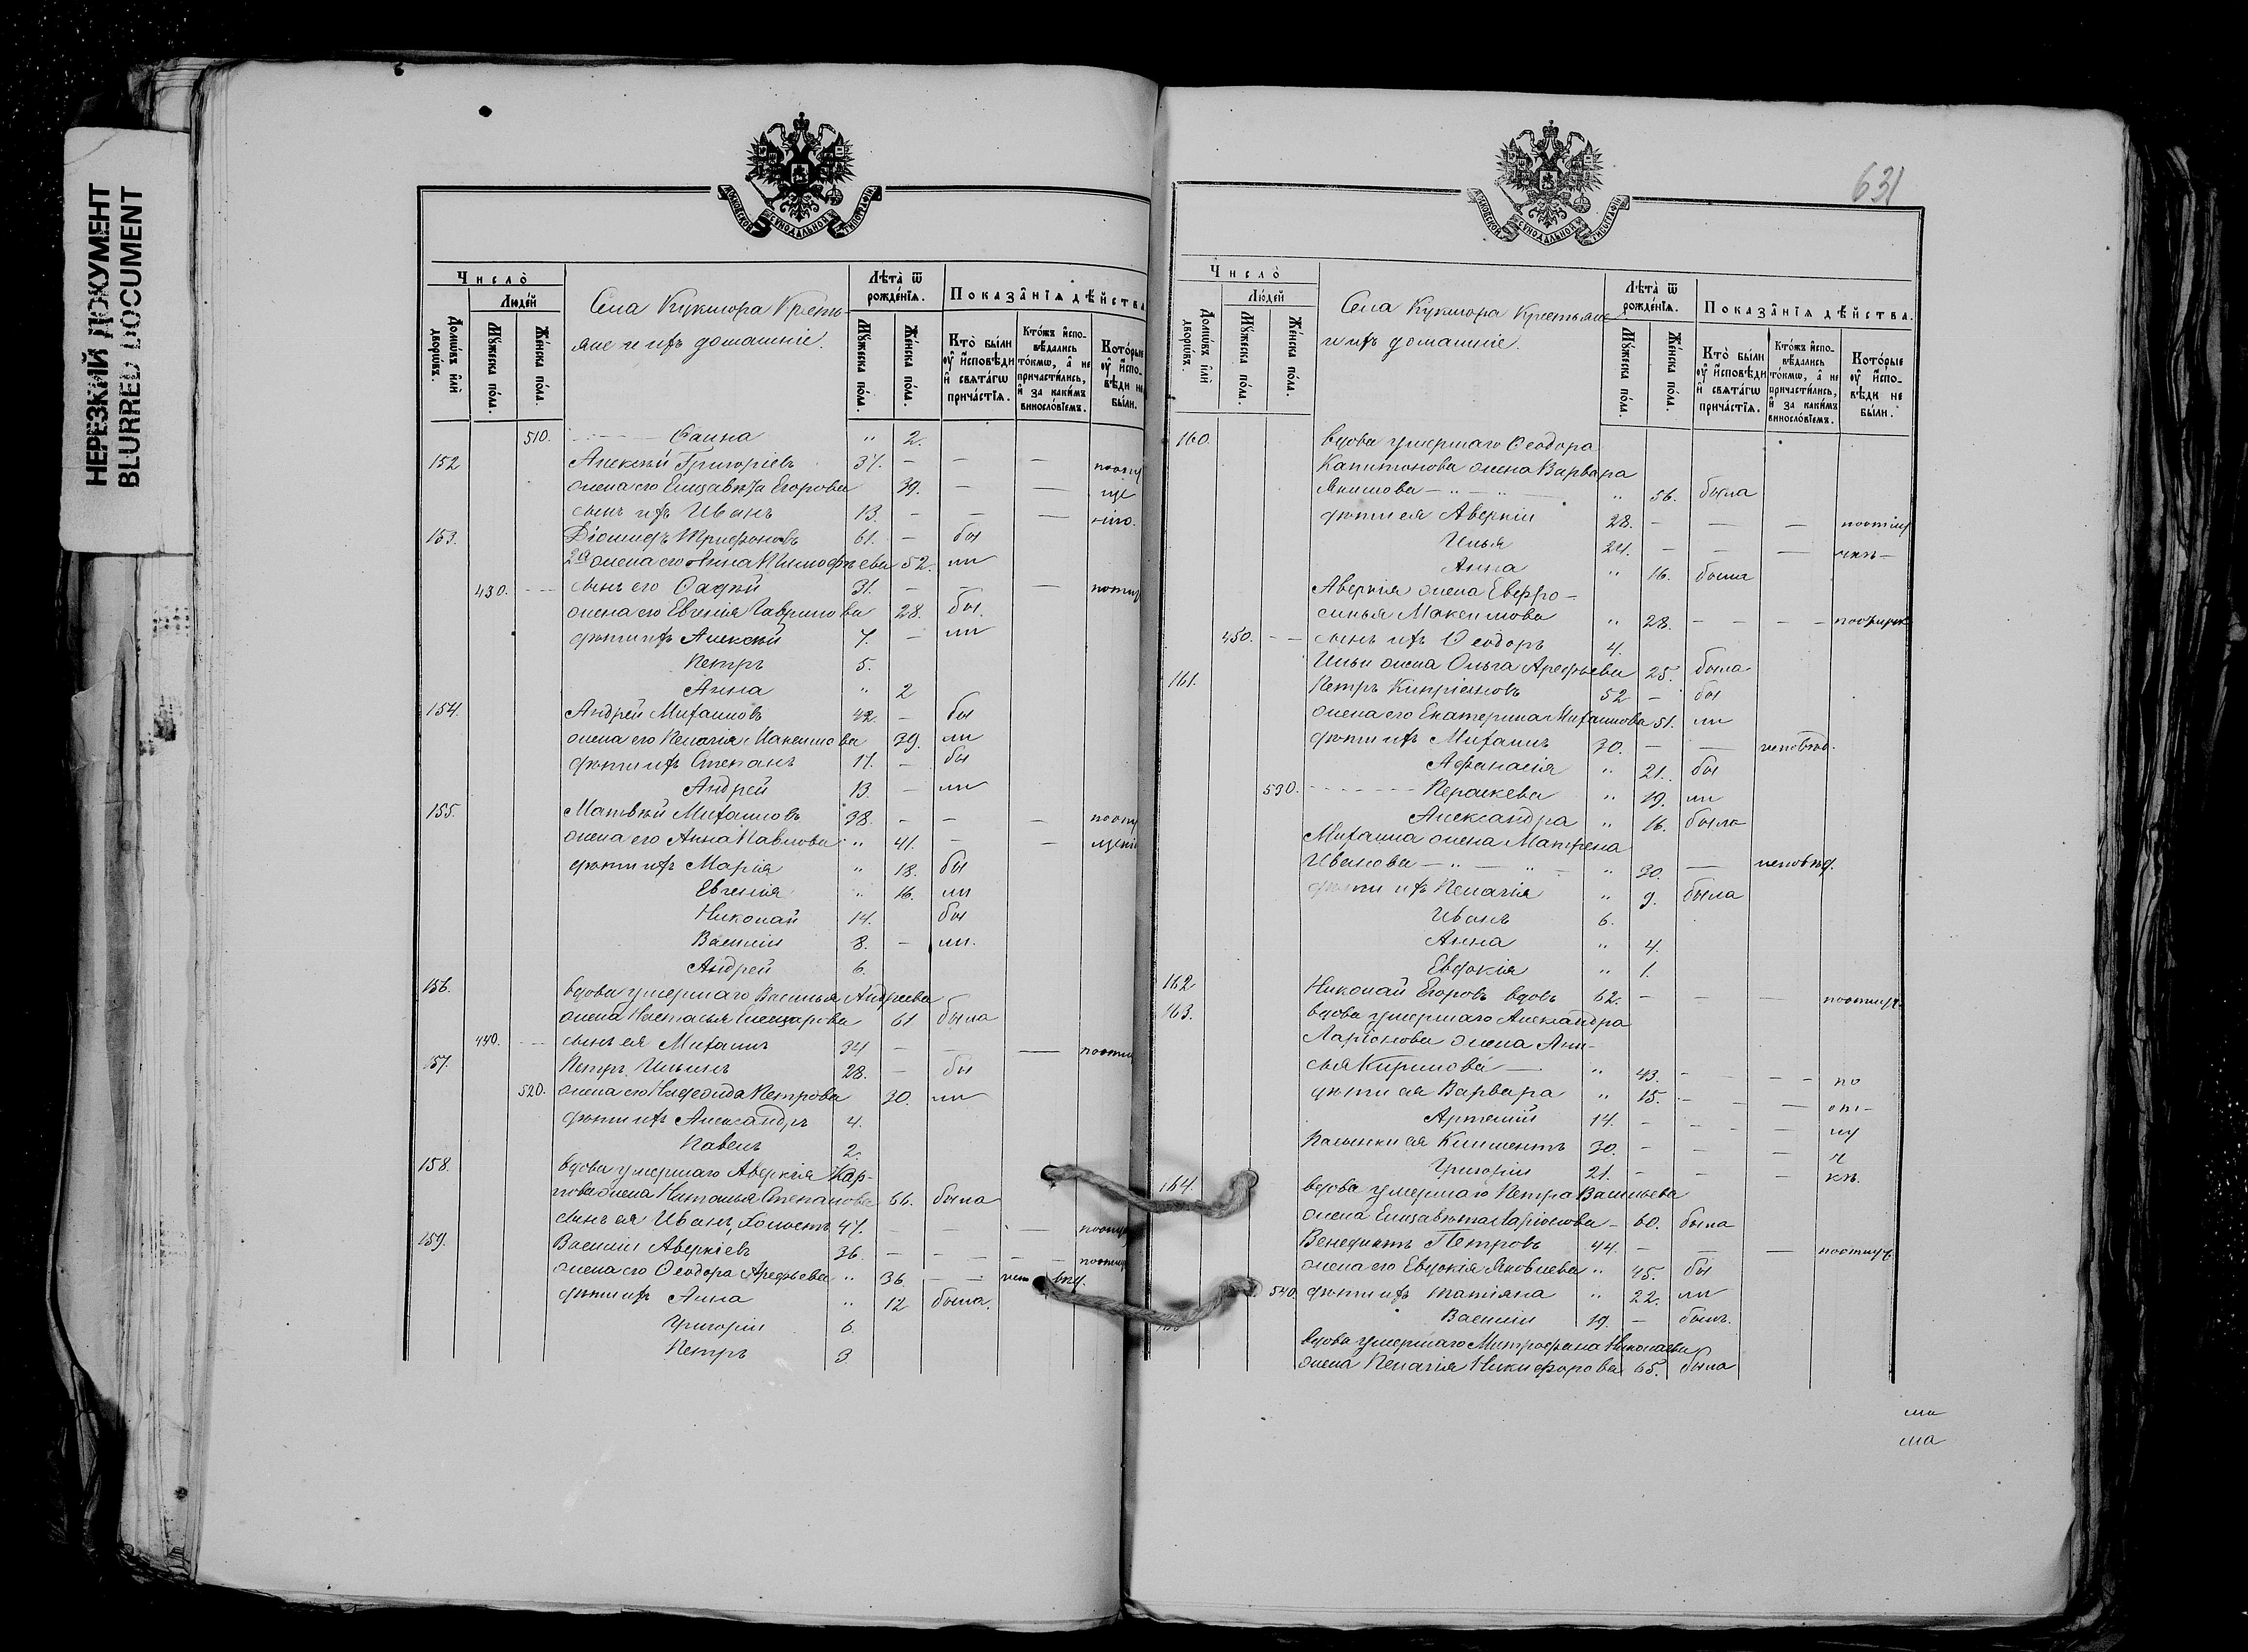 НЕРЕЗКИЙ ДОКУМЕНТ
BLURRED DOCUMENT
МОСКОВСКОЙ СѴНОДАЛЬНОЙ ТИПОГРАФІИ
Число̀
Людей
Домѡвъ и҆лѝ дворѡвъ.
Мꙋ́жеска по́ла.
Же́нска по́ла.
Села Кукмора Кресть-
яне и ихъ домашніе.
Лѣта̀ ѿ рожде́нїѧ.
Мꙋ́жеска по́ла.
Же́нска по́ла.
Показа̑нїѧ дѣ́йства
Кто̀ бы́ли ᲂу҆ и҆сповѣ́ди и҆ свѧта́гѡ прича́стїѧ.
Кто́жъ и҆спо-вѣ́дались то́кмѡ, а҆ не причасти́лись, и҆ за каки́мъ винословїемъ.
Кото́рые ᲂу҆ и҆спо-вѣ́ди не бы́ли.
510. Фаина " 2.
152 Алексѣй Григорьевъ 37. — — — поопу
жена его Елизавета Егорова 39. — — — ще
сынъ ихъ Иванъ 13. — — — нію.
153. Діомидъ Трифоновъ 61. — бы
2я жена его Анна Тимофѣева 52. ли
430. сынъ его Садокъ 31. — —
жена его Евгенія Гаврилова 28. бы
дѣти ихъ Алексѣй 7. — ли
Петръ 5.
Анна " 2
154. Андрей Михаиловъ 42. — бы
жена его Пелагія Максимова 39. ли
дѣти ихъ Степанъ 17. — бы
Андрей 13. — ли
155. Матвѣй Михаиловъ 38. — — — поопу
жена его Анна Павлова " 41. — — щені
дѣти ихъ Марія " 18. бы
Евгенія " 16. ли
Николай 14. бы
Василій 8. — ли.
Андрей 6.
156. вдова умершаго Василья Андреева
жена Настасья 61 была
440. сынъ ея Михаилъ 34 — — — поопу
157. Петръ Ильинъ 28. — бы
520. жена его Петрова 30. ли
дѣти ихъ Александръ 4.
Павелъ 2.
158. вдова умершаго Аверкія Кар-
пова жена Наталья Степанова 66. была
сынъ ея Иванъ, холостъ 47. — — — поопущ
159. Василій Аверкіевъ 36. — — — поопущ
жена его Ѳеодора Арефьева " 36. — —
дѣти ихъ Анна " 12 была.
Григорій 6.
Петръ 3
631
МОСКОВСКОЙ СѴНОДАЛЬНОЙ ТИПОГРАФІИ
Число̀
Людей
Домѡвъ и҆лѝ дворѡвъ.
Мꙋ́жеска по́ла.
Же́нска по́ла.
Села Кукмора Крестьяне
и ихъ домашніе.
Лѣта̀ ѿ рожде́нїѧ.
Мꙋ́жеска по́ла.
Же́нска по́ла.
Показа̑нїѧ дѣ́йства.
Кто̀ бы́ли ᲂу҆ и҆сповѣ́ди и҆ свѧта́гѡ прича́стїѧ.
Кто́жъ и҆спо-вѣ́дались то́кмѡ, а҆ не причасти́лись, и҆ за каки́мъ винословїемъ.
Кото́рые ᲂу҆ и҆спо-вѣ́ди не бы́ли.
160. вдова умершаго Ѳеодора
Капитонова жена Варвара
Акимова — " — " 56. была
дѣти ея Аверкій 28. — — —
Илья 24. — — —
Анна " 16. была
Аверкія жена Евфро-
синья Максимова " 28. — — —
450. сынъ ихъ Ѳеодоръ 4.
Ильи жена Ольга Арефьева 25. была
161. Петръ Кипріановъ 52 — бы
жена его Екатерина Михаилова 51. ли
дѣти ихъ Михаилъ 30. — — исповѣд.
Афанасія " 21. бы
530. Параскева " 19. ли
Александра " 16. была
Михаила жена Матрена
Иванова — " — " 30. — исповѣд.
дѣти ихъ Пелагія " 9. была
Иванъ 6.
Анна " 4.
Евдокія " 1.
162 Николай Егоровъ вдовъ 62. — — —
163. вдова умершаго Александра
Ларіонова жена Ани-
сья Кирилова — " 43. — — — по
дѣти ея Варвара " 15. — — —
Артемій 14. — — —
Климентъ 30. — — —
Григорій 21. — — —
164. вдова умершаго Петра Васильева
жена Елизавета Ларіонова — 60. была
Венедиктъ Петровъ 44. — — —
жена его Евдокія Яковлева " 45. бы
540. дѣти ихъ Татіана " 22. ли
Василій 19. — былъ.
вдова умершаго Митрофана Николаева
жена Пелагія Никифорова 65. была
ли
ла